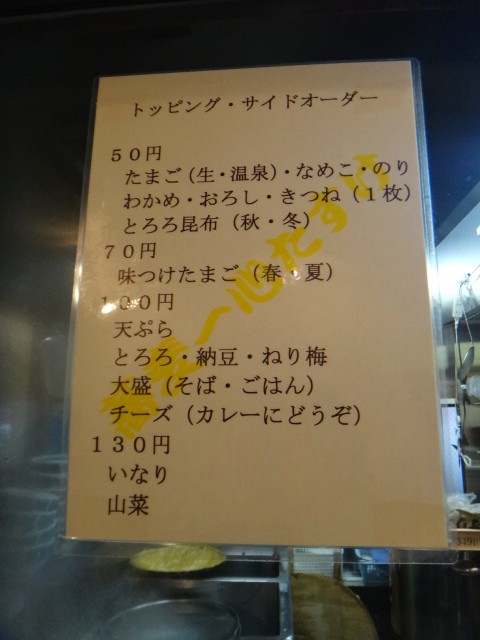 トッピング・サイドオーダー
５０円
たまご（生・温泉）・なめこ・のり
わかめ・おろし・きつね（１枚）
とろろ昆布（秋・冬）
７０円
味つけたまご（春・夏）
１００円
天ぷら
とろろ・納豆・ねり梅
大盛（そば・ごはん）
チーズ（カレーにどうぞ）
１３０円
いなり
山菜
蕎麦一心たすけ